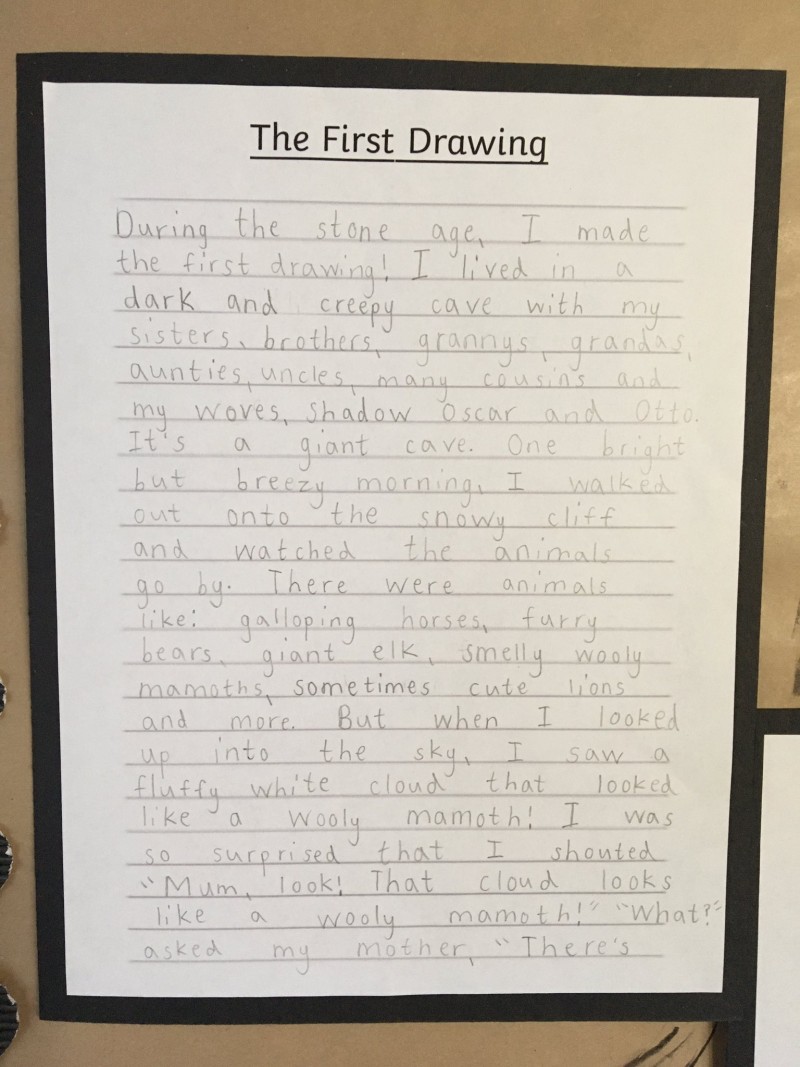 The First Drawing
During the stone age, I made
the first drawing! I lived in a
dark and creepy cave with my
sisters, brothers, grannys, grandas,
aunties, uncles, many cousins and
my woves, Shadow Oscar and Otto.
It's a giant cave. One bright
but breezy morning, I walked
out onto the snowy cliff
and watched the animals
go by. There were animals
like: galloping horses, furry
bears, giant elk, smelly wooly
mamoths, sometimes cute lions
and more. But when I looked
up into the sky, I saw a
fluffy white cloud that looked
like a wooly mamoth! I was
so surprised that I shouted
"Mum, look! That cloud looks
like a wooly mamoth!" "What?"
asked my mother, "There's